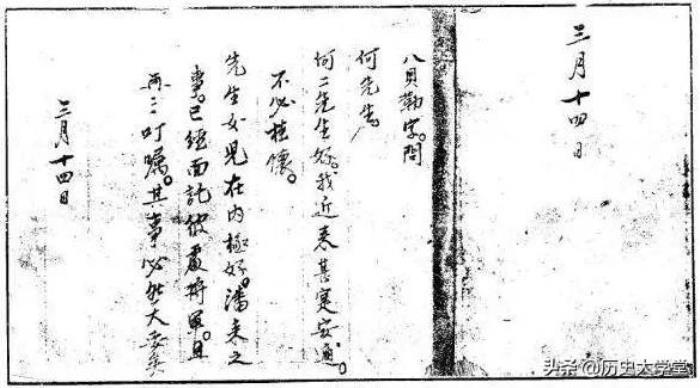 三月十四日
八貝勒字。問
何先生
何二先生好。我近来甚寔安適。
不必掛懷。
先生女児在内極好。潘来之
事。已經面託彼處將軍。且
再三叮嘱。其事必然大妥矣
三月十四日
头条 @历史大学堂